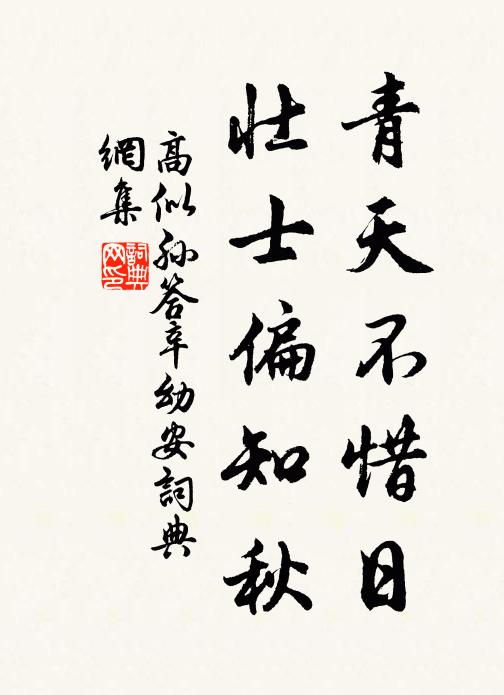 青天不惜日
壮士偏知秋
高似孙答辛幼安詞典
網集
詞典
网印